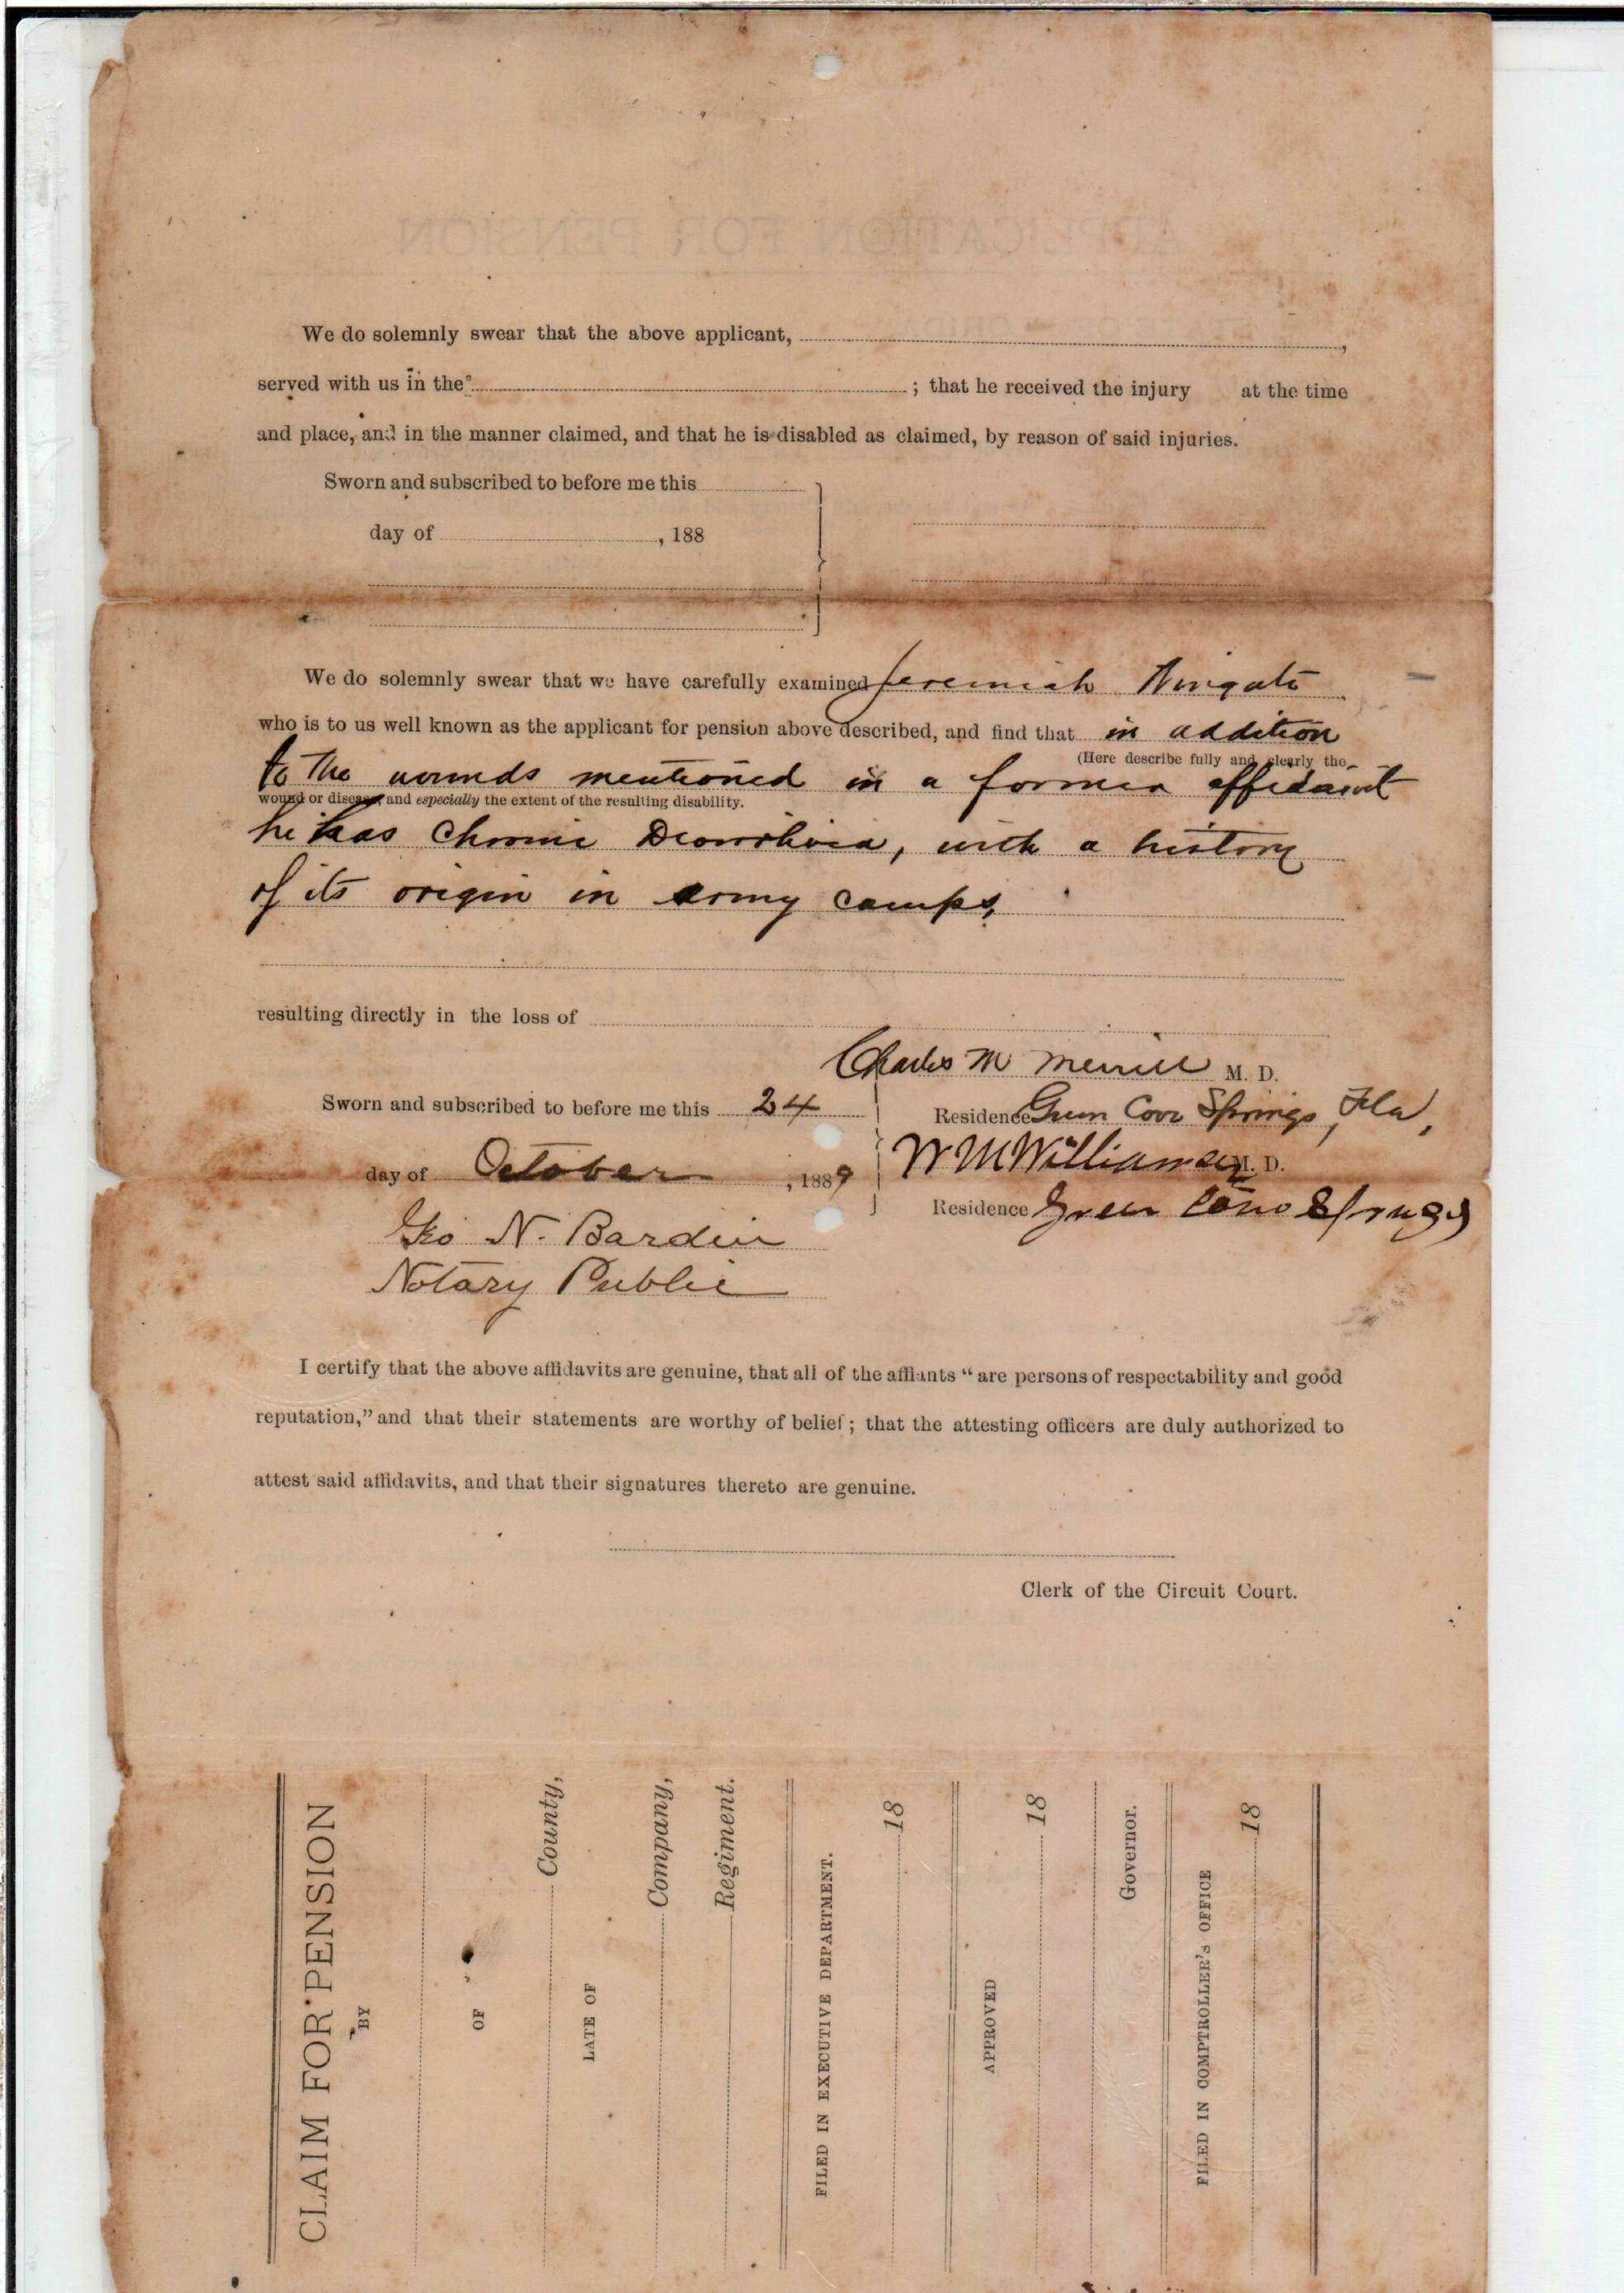 APPLICATION FOR PENSION
We do solemnly swear that the above applicant, ,
served with us in the ; that he received the injury at the time
and place, and in the manner claimed, and that he is disabled as claimed, by reason of said injuries.
Sworn and subscribed to before me this
day of , 188
We do solemnly swear that we have carefully examined Jeremiah Wingate
who is to us well known as the applicant for pension above described, and find that in addition
(Here describe fully and clearly the
to the wounds mentioned in a former affidavit
wound or disease, and especially the extent of the resulting disability.
he has Chronic Diarrhoea, with a history
of its origin in army camps,
resulting directly in the loss of
Charles M Merrill M. D.
Sworn and subscribed to before me this 24
Residence Green Cove Springs, Fla,
day of October , 1889
W M Williams M. D.
Residence Green Cove Springs
Geo N. Bardin
Notary Public
I certify that the above affidavits are genuine, that all of the affiants "are persons of respectability and good
reputation," and that their statements are worthy of belief; that the attesting officers are duly authorized to
attest said affidavits, and that their signatures thereto are genuine.
Clerk of the Circuit Court.
CLAIM FOR PENSION
BY
OF
County,
LATE OF
Company,
Regiment.
FILED IN EXECUTIVE DEPARTMENT.
18
APPROVED
18
Governor.
FILED IN COMPTROLLER'S OFFICE
18